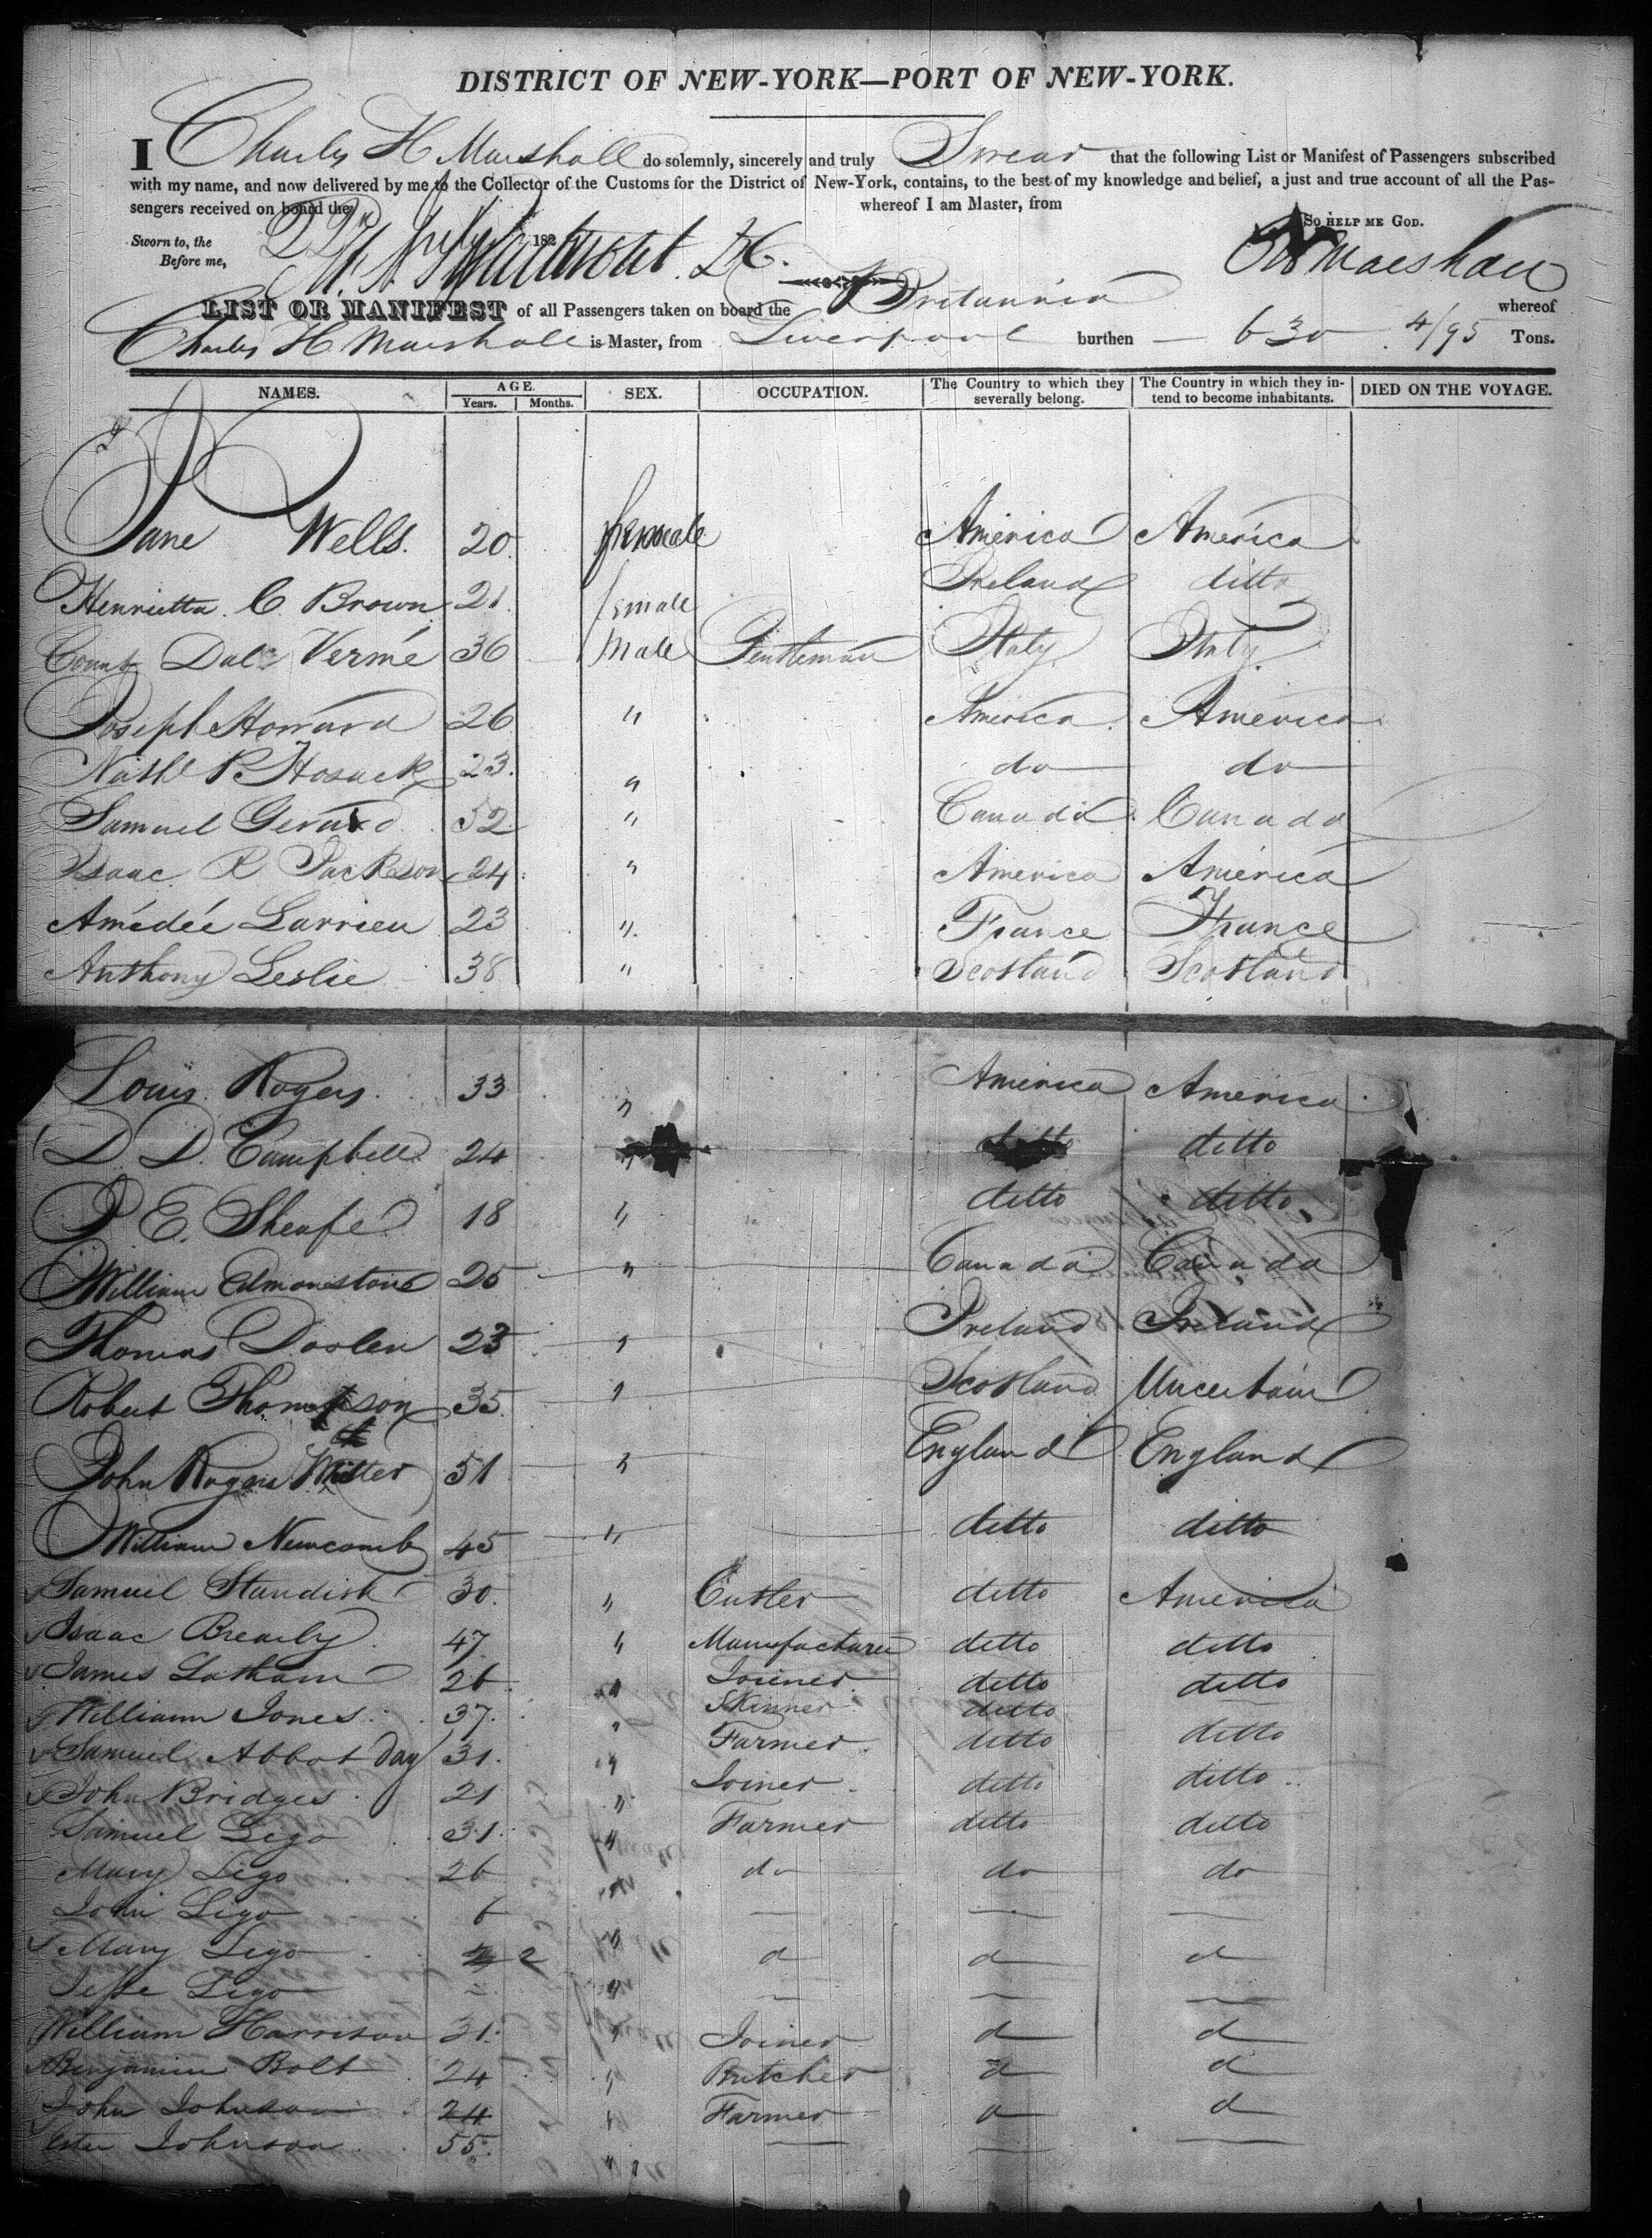 DISTRICT OF NEW-YORK—PORT OF NEW-YORK.
I Charles H Marshall do solemnly, sincerely and truly Swear that the following List or Manifest of Passengers subscribed
with my name, and now delivered by me to the Collector of the Customs for the District of New-York, contains, to the best of my knowledge and belief, a just and true account of all the Pas-
sengers received on board the whereof I am Master, from
Sworn to, the 22d July 182 SO HELP ME GOD.
Before me, C H Marshall
LIST OR MANIFEST of all Passengers taken on board the Britannia whereof
Charles H Marshall is Master, from Liverpool burthen 630 4/95 Tons.
NAMES. AGE. Years. Months. SEX. OCCUPATION. The Country to which they severally belong. The Country in which they intend to become inhabitants. DIED ON THE VOYAGE.
Jane Wells. 20. female America America
Henrietta C. Brown 21. female Ireland ditto
Count Dal Vermé 36 Male Gentleman Italy Italy
Joseph Howard 26 " America America
Nathl P. Hosack 23. " do do
Samuel Gerard 52 " Canada Canada
Isaac R Jackson 24 " America America
Amédée Larrieu 23 " France France
Anthony Leslie 38 " Scotland Scotland
Louis Rogers 33 " America America
D. D. Campbell 24 " ditto ditto
J E. Sheafe 18 " ditto ditto
William Edmonstone 25 " Canada Canada
Thomas Doolen 23 " Ireland Ireland
Robert Thompson 35 " Scotland Uncertain
John Rogers 51 " England England
William Newcomb 45 " ditto ditto
Samuel Standish 30. " Cutler ditto America
Isaac Brearly 47 " Manufacturer ditto ditto
James Latham 26 " Joiner ditto ditto
William Jones 37. " Skinner ditto
Samuel Abbot Day 31. " Farmer ditto ditto
John Bridges 21 " Joiner ditto ditto
Samuel Ligo 31. " Farmer ditto ditto
Mary Ligo 26 " do do do
John Ligo 6
Mary Ligo 2 " d d d
Jesse Ligo "
William Harrison 31. " Joiner d d
Benjamin Bolt 24 " Butcher d d
John Johnson 24 " Farmer d d
Johnson 55. "